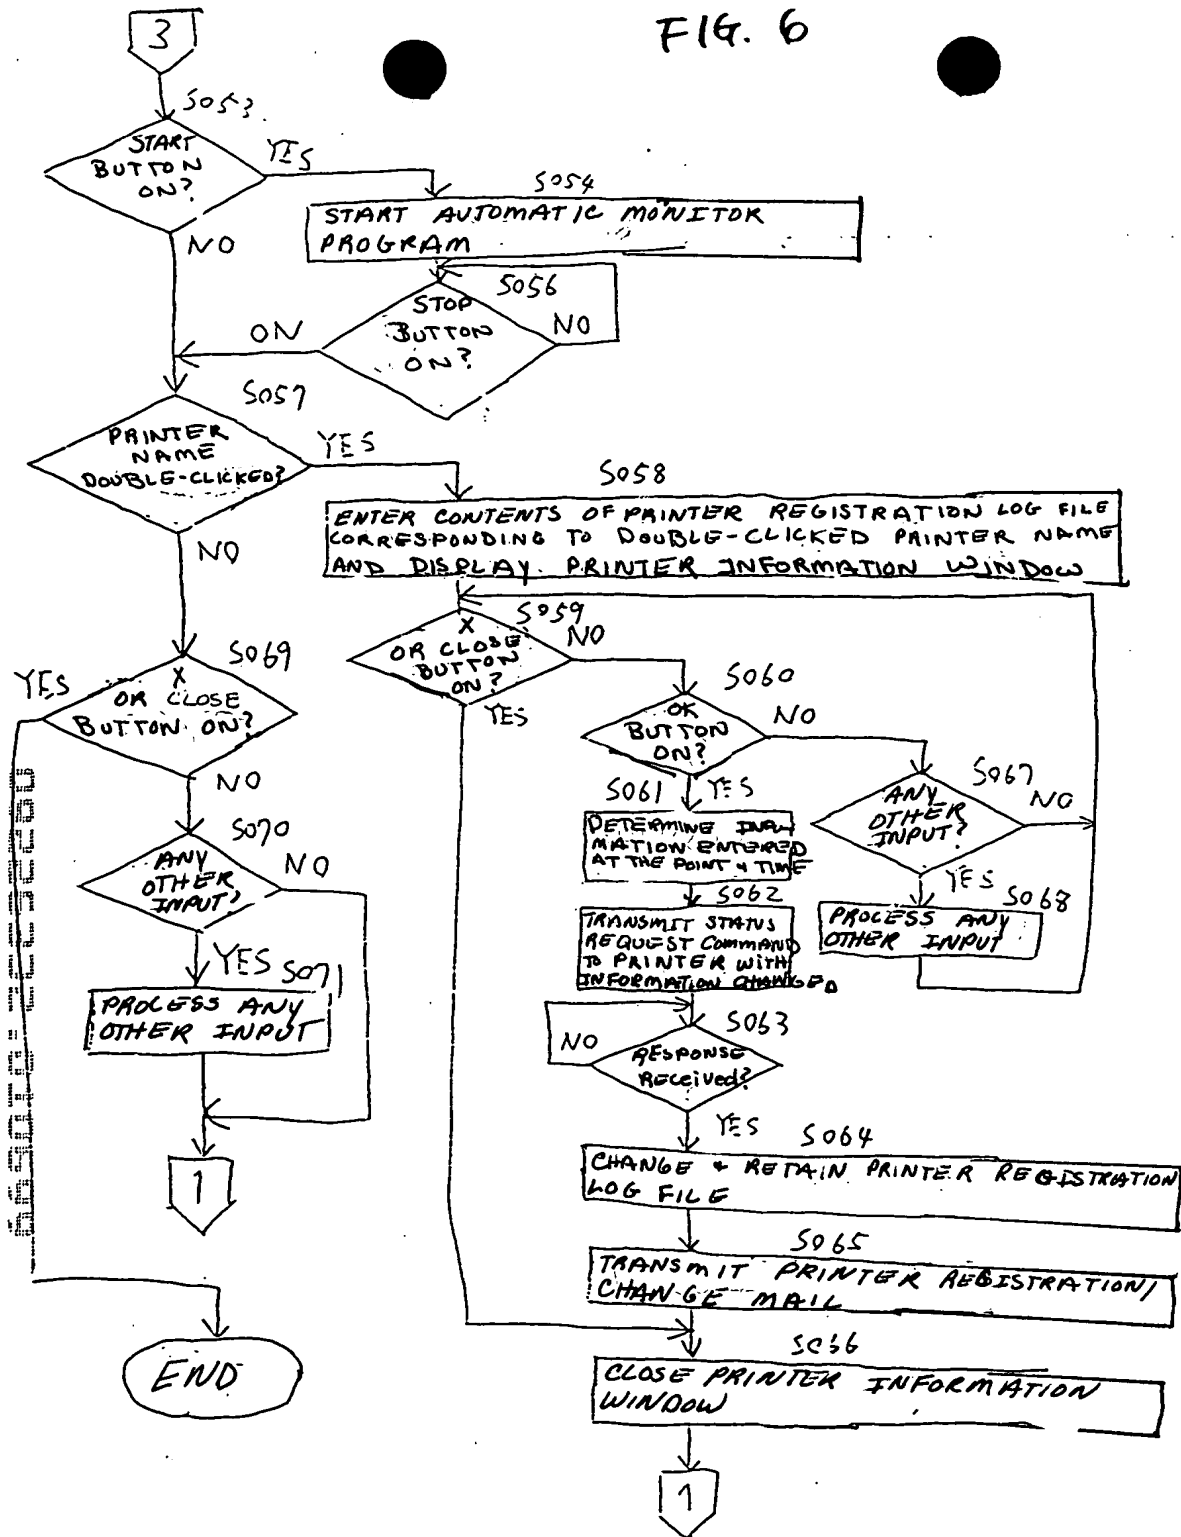 FIG. 6
3
S053
START
BUTTON
ON?
YES
NO
S054
START AUTOMATIC MONITOR
PROGRAM
S056
STOP
BUTTON
ON?
NO
ON
S057
PRINTER
NAME
DOUBLE-CLICKED?
YES
NO
S058
ENTER CONTENTS OF PRINTER REGISTRATION LOG FILE
CORRESPONDING TO DOUBLE-CLICKED PRINTER NAME
AND DISPLAY PRINTER INFORMATION WINDOW
S059
X
OR CLOSE
BUTTON
ON?
NO
YES
S060
OK
BUTTON
ON?
NO
YES
S061
DETERMINE
MATION ENTERED
AT THE POINT & TIME
S062
TRANSMIT STATUS
REQUEST COMMAND
TO PRINTER WITH
INFORMATION CHANGED
S063
RESPONSE
Received?
NO
YES
S064
CHANGE & RETAIN PRINTER REGISTRATION
LOG FILE
S065
TRANSMIT PRINTER REGISTRATION/
CHANGE MAIL
S066
CLOSE PRINTER INFORMATION
WINDOW
1
S067
ANY
OTHER
INPUT?
NO
YES
S068
PROCESS ANY
OTHER INPUT
S069
X
OR CLOSE
BUTTON ON?
YES
NO
S070
ANY
OTHER
INPUT?
NO
YES
S071
PROCESS ANY
OTHER INPUT
1
END